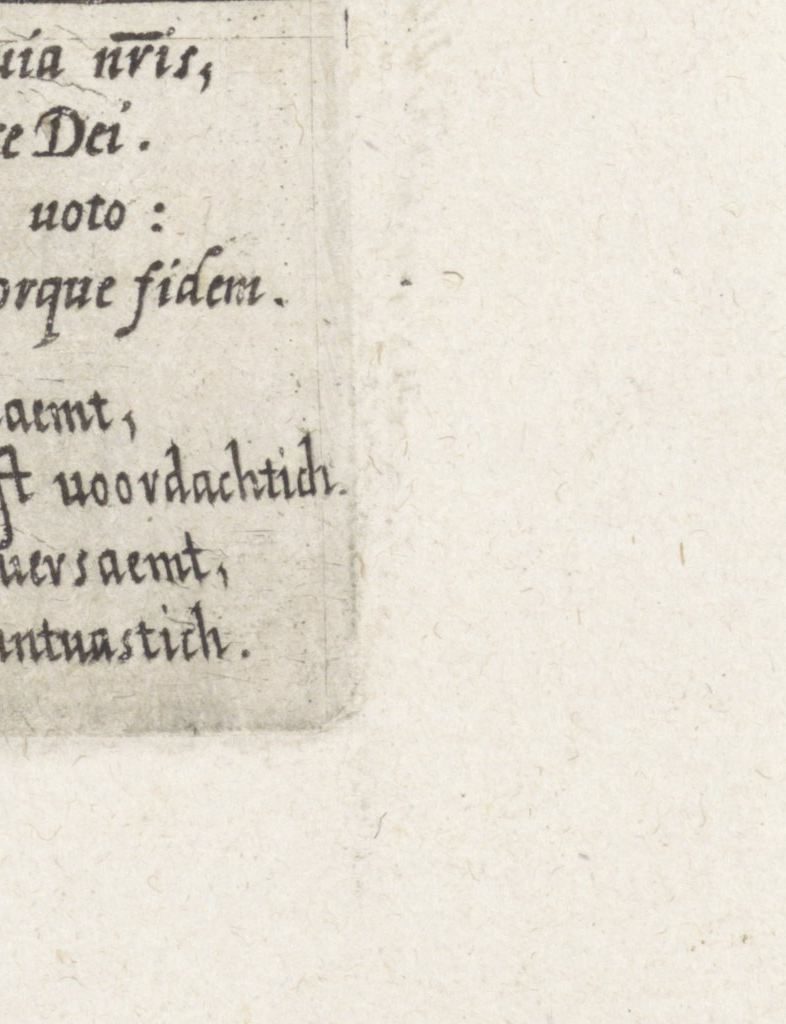 uia nr̅is,
e Dei.
uoto :
orque fidem.
aemt,
st uoordachtich.
uersaemt,
antuastich.